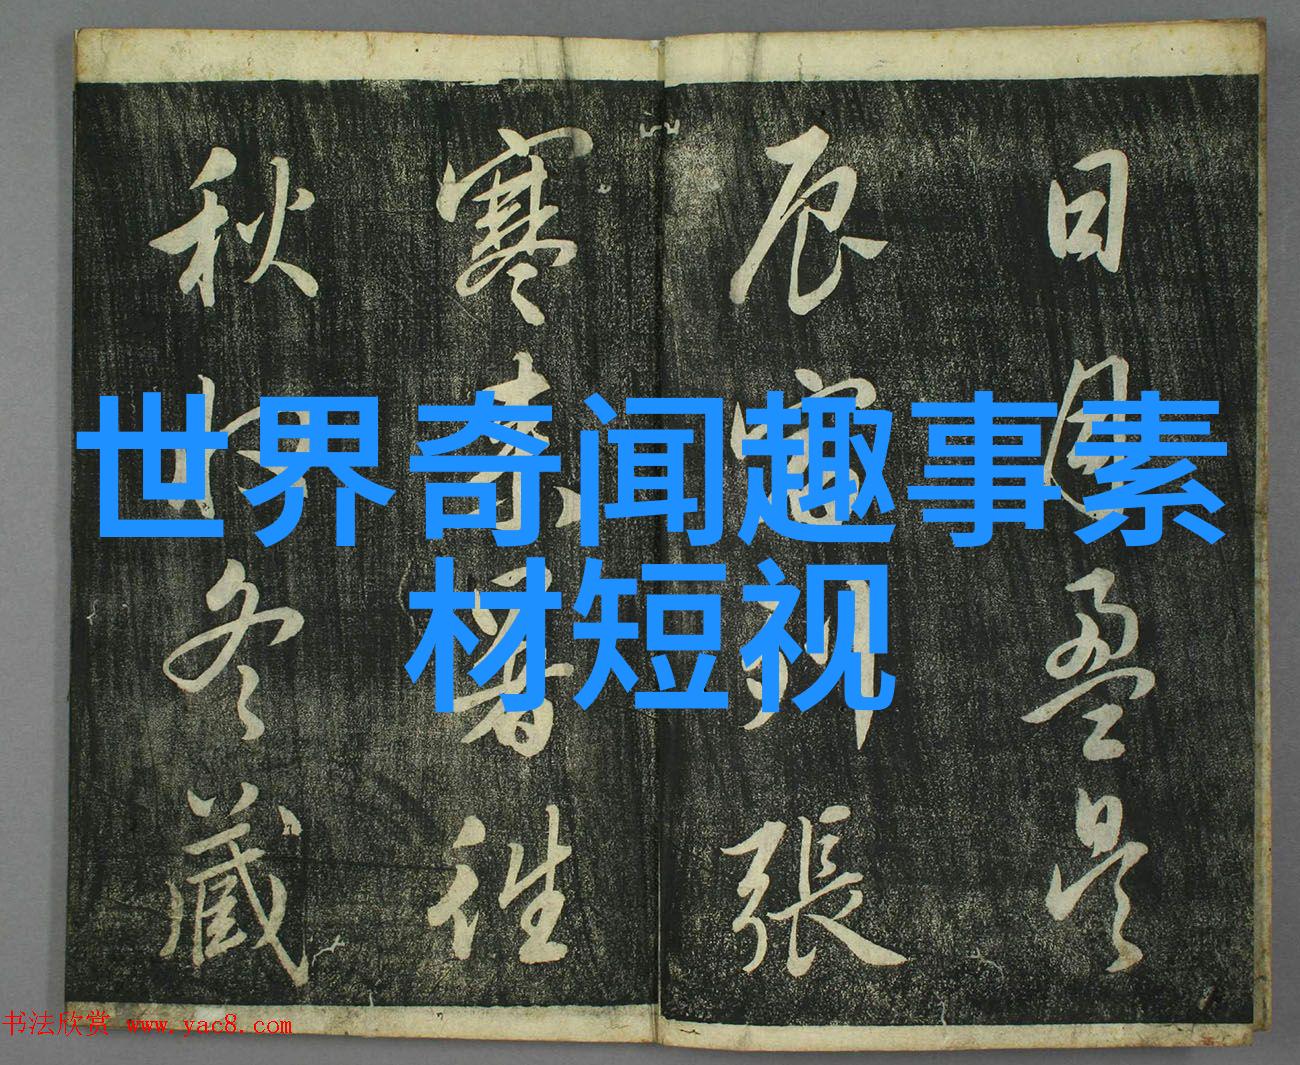 世界奇闻趣事素
材短视
日月盈昃
辰宿列張
寒来暑往
秋收冬藏
书法欣赏 www.yac8.com